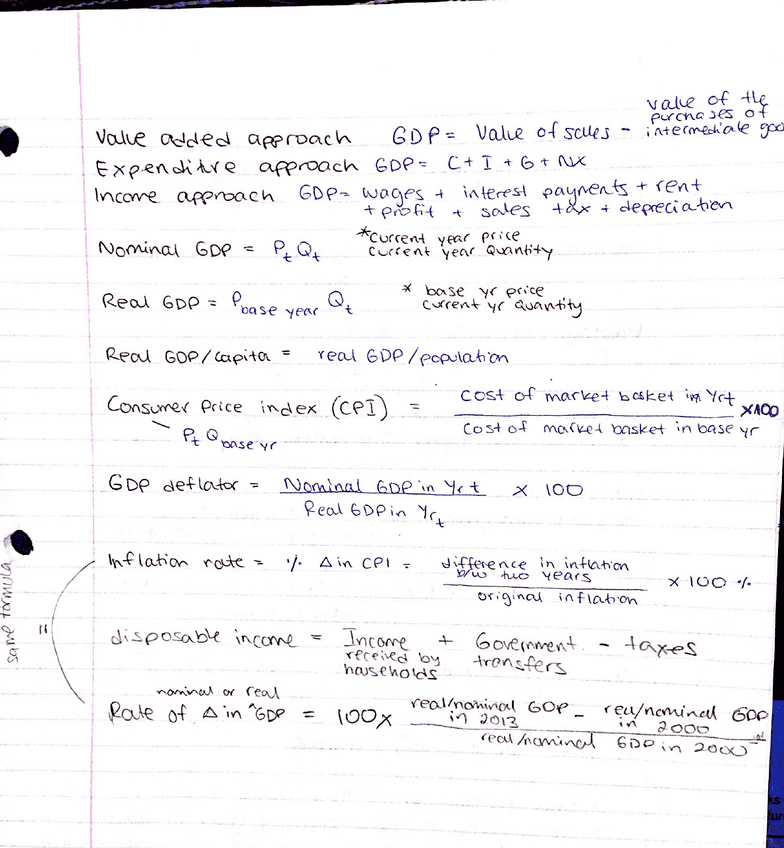 value of the
purchases of
Value added approach GDP = Value of sales - intermediate goo
Expenditure approach GDP = C + I + G + NX
Income approach GDP = wages + interest payments + rent
+ profit + sales tax + depreciation
Nominal GDP = PtQt *current year price
current year quantity
Real GDP = Pbase year Qt * base yr price
current yr quantity
Real GDP/capita = real GDP/population
Consumer Price index (CPI) = cost of market basket in Yrt X100
cost of market basket in base yr
Pt Qbase yr
GDP deflator = Nominal GDP in Yrt X 100
Real GDP in Yrt
Inflation rate = % Δ in CPI = difference in inflation
b/w two years X 100 %
original inflation
same formula
"
disposable income = Income + Government - taxes
received by transfers
households
nominal or real
Rate of Δ in ^GDP = 100x real/nominal GDP - real/nominal GDP
in 2013 in 2000
real/nominal GDP in 2000